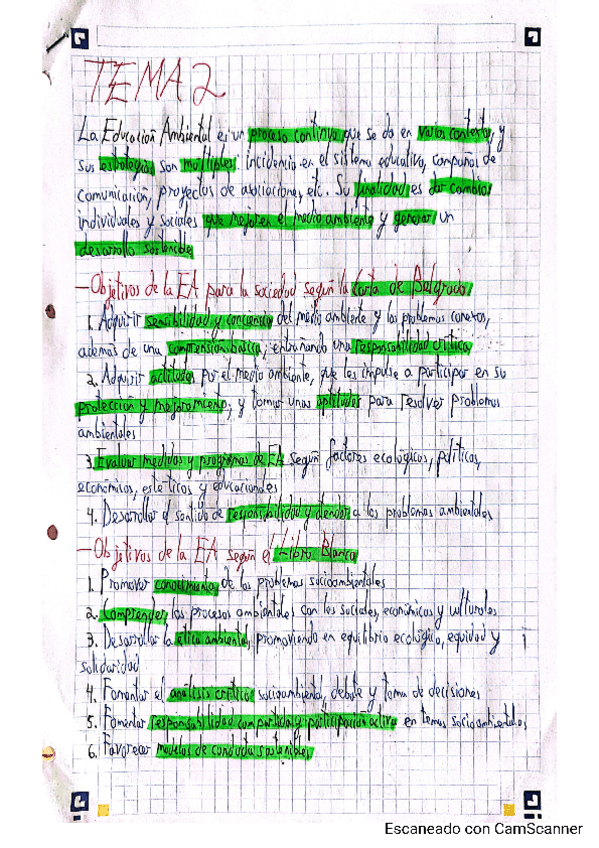 TEMA 2
La Educación Ambiental es un proceso continuo que se da en varios contextos y
sus estrategias son múltiples: incidencia en el sistema educativo, campañas de
comunicación, proyectos de asociaciones, etc. Su finalidad es dar cambios
individuales y sociales que mejoren el medio ambiente y generar un
desarrollo sostenible
-Objetivos de la EA para la sociedad según la Carta de Belgrado
1. Adquirir sensibilidad y conciencia del medio ambiente y los problemas conexos,
además de una comprensión básica, entrañando una responsabilidad crítica
2. Adquirir actitudes por el medio ambiente, que les impulse a participar en su
protección y mejoramiento, y tomar unas aptitudes para resolver problemas
ambientales
3. Evaluar medidas y programas de EA según factores ecológicos, políticos,
económicos, estéticos y educacionales
4. Desarrollar el sentido de responsabilidad y a los problemas ambientales
-Objetivos de la EA según el Libro Blanco
1. Promover conocimiento de los problemas socioambientales
2. Comprender los procesos ambientales con los sociales, económicos y culturales
3. Desarrollar la ética ambiental, promoviendo en equilibrio ecológico, equidad y
solidaridad
4. Fomentar el análisis crítico socioambiental, debate y toma de decisiones
5. Fomentar responsabilidad compartida y participación activa en temas socioambientales
6. Favorecer modelos de conducta sostenibles
Escaneado con CamScanner